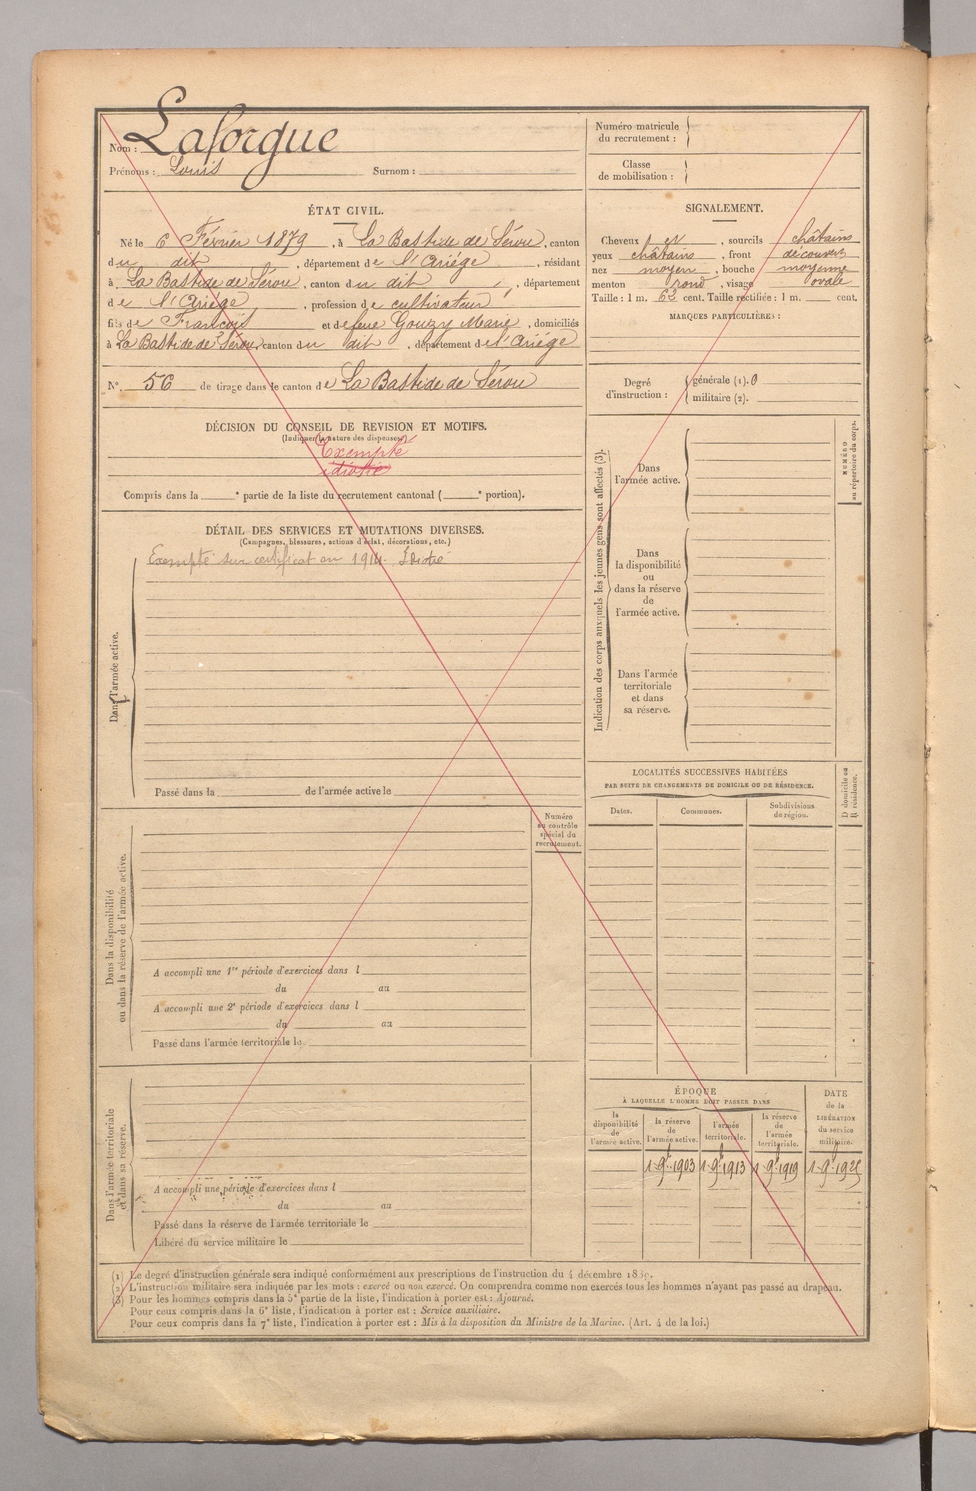 Nom : Laforgue
Prénoms : Louis Surnom :
ÉTAT CIVIL.
Né le 6 Février 1879, à La Bastide de Sérou, canton
du dit, département de l'Ariége, résidant
à La Bastide de Sérou, canton du dit, département
de l'Ariége, profession de cultivateur
fils de François et de feue Gouzy Marie, domiciliés
à La Bastide de Sérou canton du dit, département de l'Ariége
N° 56 de tirage dans le canton de La Bastide de Sérou
DÉCISION DU CONSEIL DE REVISION ET MOTIFS.
(Indiquer la nature des dispenses)
Exempté
idiotie
Compris dans la e partie de la liste du recrutement cantonal ( e portion).
DÉTAIL DES SERVICES ET MUTATIONS DIVERSES.
(Campagnes, blessures, actions d'éclat, décorations, etc.)
Exempté sur certificat en 1914. Idiotie
Dans l'armée active.
Passé dans la de l'armée active le
Numéro
au contrôle
spécial du
recrutement.
Dans la disponibilité
ou dans la réserve de l'armée active.
A accompli une 1re période d'exercices dans l
du au
A accompli une 2e période d'exercices dans l
du au
Passé dans l'armée territoriale le
Dans l'armée territoriale
et dans sa réserve.
A accompli une période d'exercices dans l
du au
Passé dans la réserve de l'armée territoriale le
Libéré du service militaire le
Numéro matricule
du recrutement :
Classe
de mobilisation :
SIGNALEMENT.
Cheveux et, sourcils châtains
yeux châtains, front découvert
nez moyen, bouche moyenne
menton rond, visage ovale
Taille : 1 m. 63 cent. Taille rectifiée : 1 m. cent.
MARQUES PARTICULIÈRES :
Degré
d'instruction :
générale (1). 0
militaire (2).
Indication des corps auxquels les jeunes gens sont affectés (3).
Dans
l'armée active.
NUMÉRO
au répertoire du corps.
Dans
la disponibilité
ou
dans la réserve
de
l'armée active.
Dans l'armée
territoriale
et dans
sa réserve.
LOCALITÉS SUCCESSIVES HABITÉES
PAR SUITE DE CHANGEMENTS DE DOMICILE OU DE RÉSIDENCE.
D domicile ou
R résidence.
Dates. Communes. Subdivisions
de région.
ÉPOQUE
À LAQUELLE L'HOMME DOIT PASSER DANS
la
disponibilité
de
l'armée active.
la réserve
de
l'armée active.
l'armée
territoriale.
la réserve
de
l'armée
territoriale.
DATE
de la
LIBÉRATION
du service
militaire.
1 9bre 1903 1 9bre 1913 1 9bre 1919
(1) Le degré d'instruction générale sera indiqué conformément aux prescriptions de l'instruction du 4 décembre 1889.
(2) L'instruction militaire sera indiquée par les mots : exercé ou non exercé. On comprendra comme non exercés tous les hommes n'ayant pas passé au drapeau.
(3) Pour les hommes compris dans la 5e partie de la liste, l'indication à porter est : Ajourné.
Pour ceux compris dans la 6e liste, l'indication à porter est : Service auxiliaire.
Pour ceux compris dans la 7e liste, l'indication à porter est : Mis à la disposition du Ministre de la Marine. (Art. 4 de la loi.)